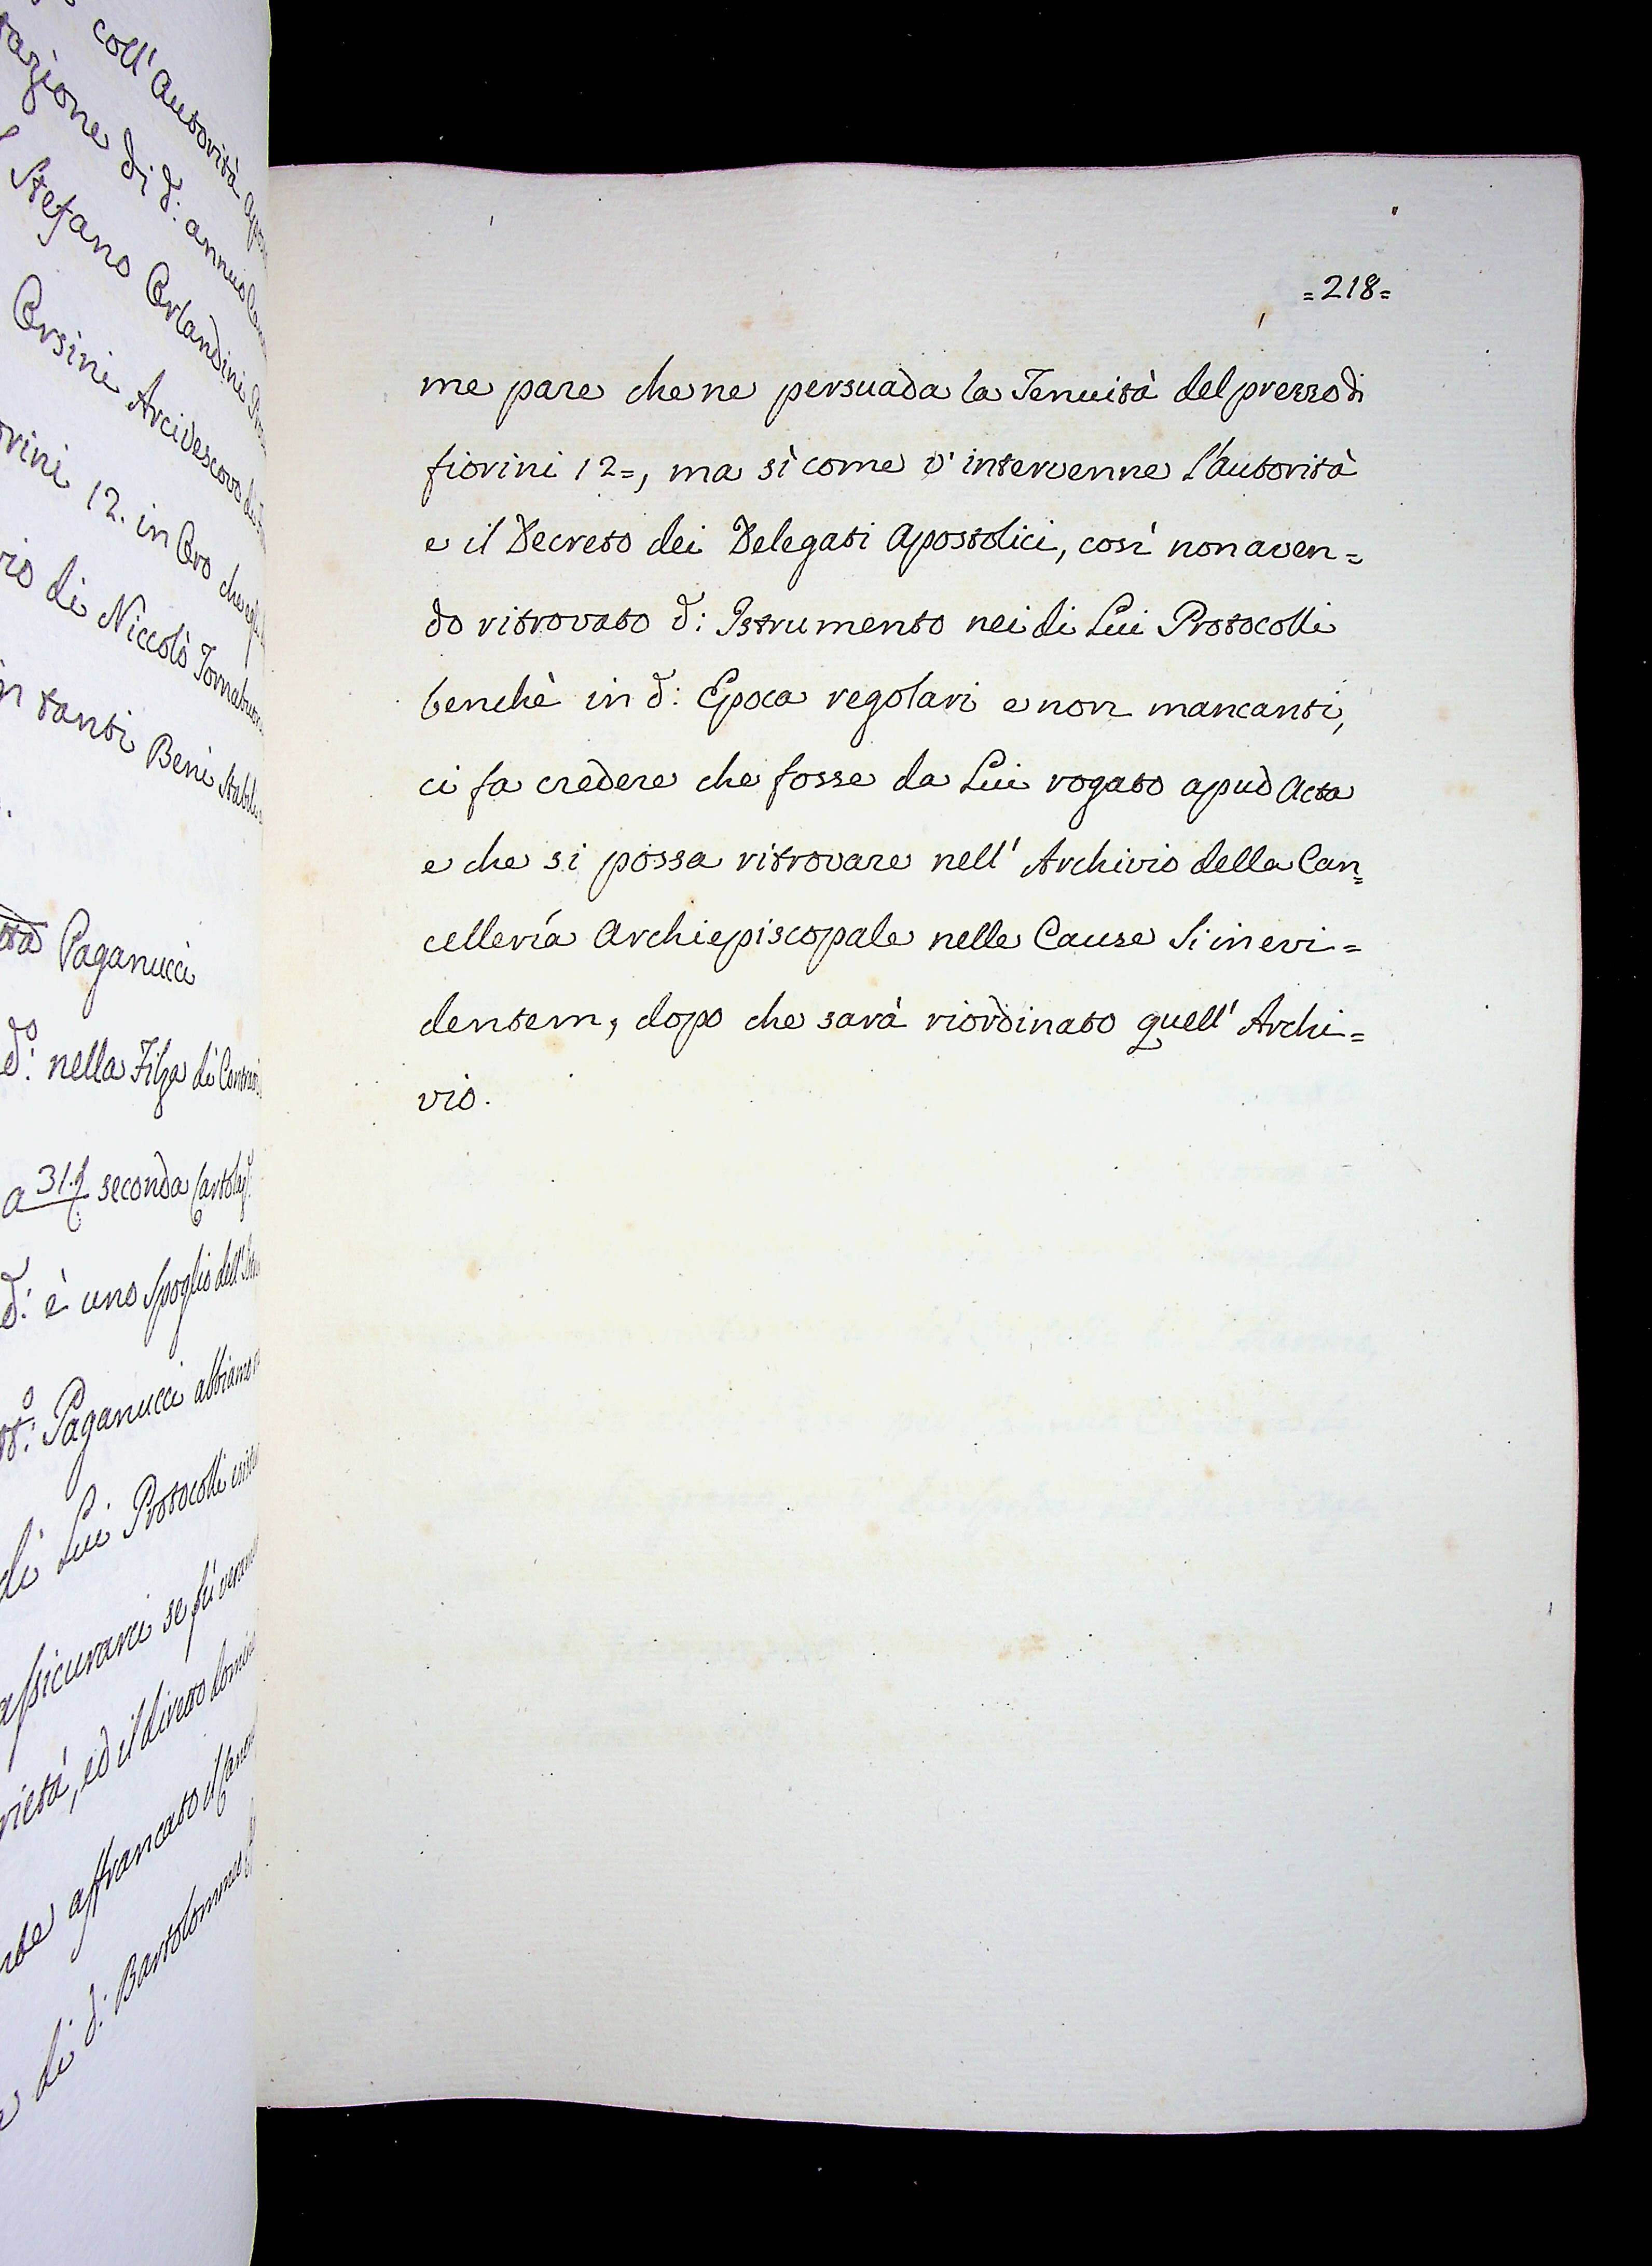 coll' Autorità
azione di d: annuo
Stefano Orlandini
Orsini Arcivescovo di
fiorini 12. in Oro che
di Niccolò Tornabuoni
tanti Beni Stabili
Paganucci
d:º nella Filza di Contratti
a 31.f seconda
d: è uno Spoglio dell'
Paganucci abbiamo
di Lui Protocolli
assicurarci se fù
ed il diretto
affrancato il
di d: Bartolommeo
=218=
me pare che ne persuada la Tenuità del prezzo di
fiorini 12=, ma sì come v' intervenne l'autorità
e il Decreto dei Delegati Apostolici, così non aven=
do ritrovato d: Istrumento nei di Lui Protocolli
benchè in d: Epoca regolari e non mancanti,
ci fa credere che fosse da Lui rogato apud Acta
e che si possa ritrovare nell' Archivio della Can=
cellerìa Archiepiscopale nelle Cause Si in evi=
dentem, dopo che sarà riordinato quell' Archi=
vio.